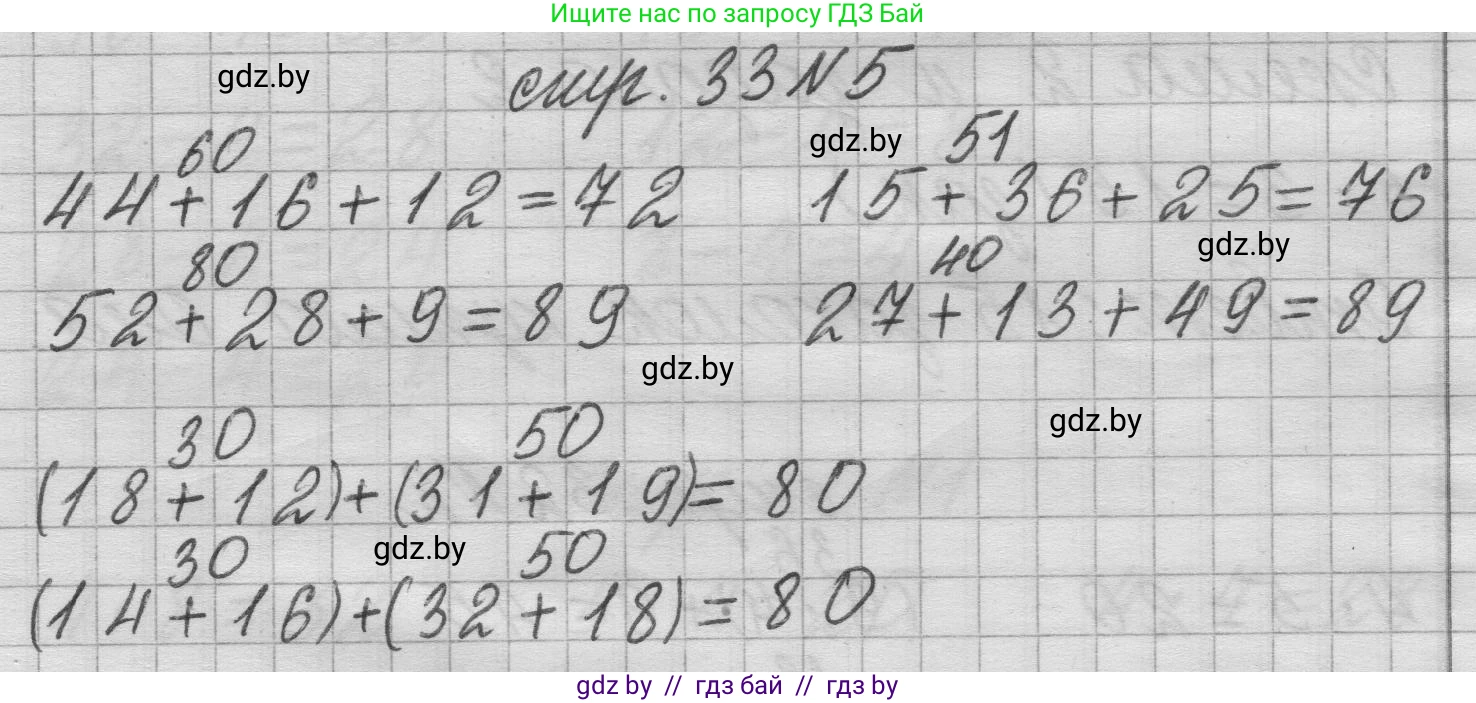 Ищите нас по запросу ГДЗ Бай
gdz.by
стр. 33 N 5
60
44+16+12=72
gdz.by
51
15+36+25=76
80
52+28+9=89
gdz.by
40
27+13+49=89
gdz.by
30 50
(18+12)+(31+19)=80
gdz.by
30 50
gdz.by
(14+16)+(32+18)=80
gdz by // gdz бай // гдз by